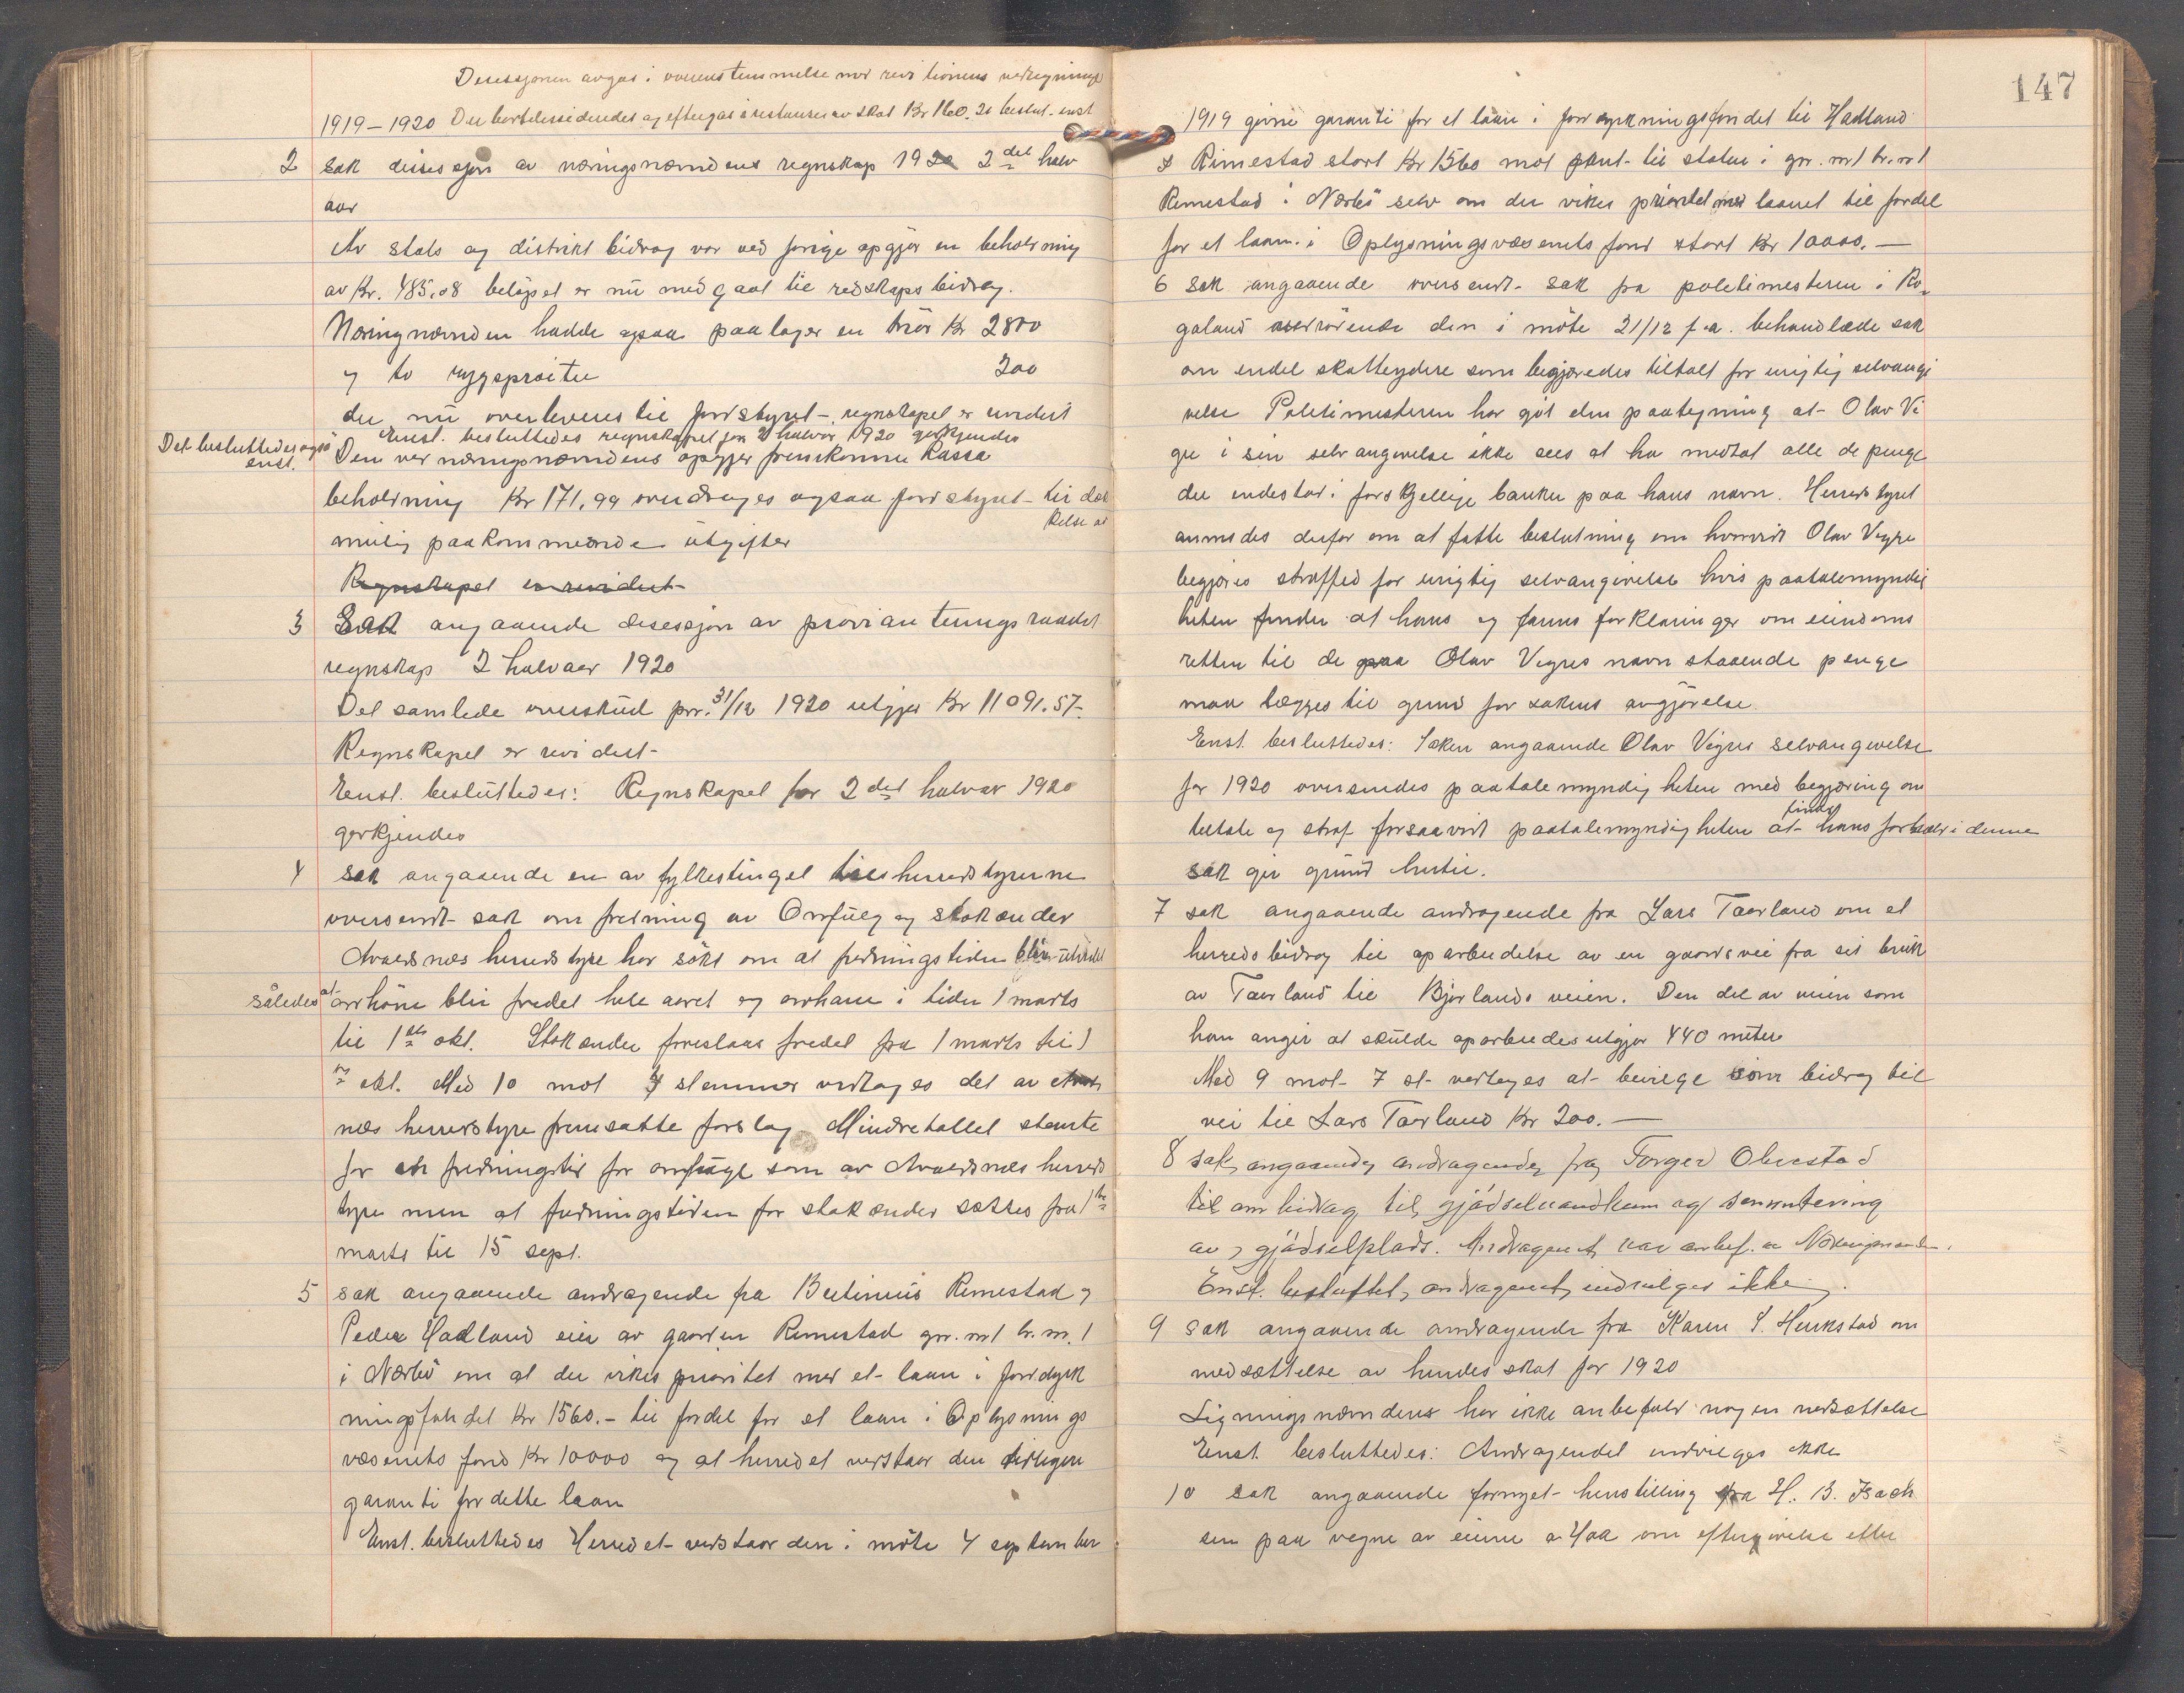 Desessjonen avgas i overenstemmelse med revisionens
1919–1920 Det besluttedes og eftergas i restanser av skat Kr 160.20 beslut. enst
2 sak desessjon av næringsnæmdens regnskap 1920 2det halv
aar
Av stats og distrikt bidrag var ved forrige opgjør en beholdning
av Kr. 485,08 beløpet er nu medgaat til redskaps bidrag.
Næringnæmden hadde ogsaa paa lager en trior Kr 2800
og to rygsprøiter 200
der nu overleveres til jordstyret – regnskapet er revidert
Enst. besluttedes regnskapet for 2 halvår 1920 godkjendes
Det besluttedes også
enst.
Den ved næringsnæmdens opgjør fremkomne Kassa
beholdning Kr 171,99 overdrages ogsaa jordstyret – til dæk
kelse av
mulig paakommende utgifter
Regnskapet er revidert
3 Sak angaaende desessjon av provianteringsraadet
regnskap 2 halvaar 1920
Det samlede overskud pr. 31/12 1920 utgjør Kr 11091.57.
Regnskapet er revidert –
Enst. besluttedes: Regnskapet for 2det halvår 1920
godkjendes
4 sak angaaende en av fylkestinget til herredstyrerne
oversendt sak om fredning av Orrfugl og stokænder
Avaldsnes herredstyre har søkt om at fredningstiden blir utvidet
således at orrhøne blir fredet hele aaret og orrhane i tiden 1 marts
til 1ste okt. Stokænder foreslaas fredet fra 1 marts til 1
ste okt. Med 10 mot 4 stemmer vedtages det av Avalds
nes herredstyre fremsatte forslag. Mindretallet stemte
for en fredningstid for orrfugl som av Avaldsnes herreds
tyre men at fredningstiden for stokænder sættes fra 1ste
marts til 15 sept.
5 sak angaaende andragende fra Bertinius Rimestad og
Peder Hadland eier av gaarden Rimestad gnr. nr 1 br. nr. 1
i Nærbø om at der vikes prioritet med et laan i jorddyrk
ningsfondet Kr 1560.– til fordel for et laan i Oplysnings
væsenets fond Kr 10000 og at herredet vedstaar den tidligere
garanti for dette laan
Enst. besluttedes Herredet vedstaar den i møte 4 september
147
1919 givne garanti for et laan i jorddyrkningsfondet til Hadland
& Rimestad stort Kr 1560 mot pant til staten i gnr. nr 1 br. nr 1
Rimestad i Nærbø selv om der vikes prioritet med laanet til fordel
for et laan i Oplysningsvæsenets fond stort Kr 10000.—
6 Sak angaaende oversendt sak fra politimesteren i Ro-
galand vedrørende den i møte 21/12 f.a. behandlede sak
om endel skatteydere som begjæredes tiltalt for urigtig selvangi
velse Politimesteren har git den paategning at Olav Ve
gre i sin selvangivelse ikke sees at ha medtat alle de penge
der endestod i forskjellige banker paa hans navn. Herredstyret
anmodes derfor om at fatte beslutning om hvorvidt Olav Vegre
begjæres straffed for urigtig selvangivelse hvis paatalemyndig
heten finder at hans og farens forklaringer om eiendoms
retten til de paa Olav Vegres navn staaende penge
maa lægges til grund for sakens avgjørelse.
Enst. besluttedes: Saken angaaende Olav Vegres selvangivelse
for 1920 oversendes paatalemyndigheten med begjæring om
tiltale og straf forsaavidt paatalemyndigheten finder at hans forhold i denne
sak gir grund hertil.
7 sak angaaende andragende fra Lars Taarland om et
herredsbidrag til oparbeidelse av en gaardsvei fra sit bruk
av Taarland til Bjorlands veien. Den del av veien som
han angir at skulde oparbeides utgjør 440 meter
Med 9 mot 7 st. vedtages at bevilge som bidrag til
vei til Lars Taarland Kr 200.—
8 Sak angaaende andragende fra Torger Obrestad
til om bidrag til gjødselvandkum og sementering
av gjødselplads. Andragenet var anbef. av Næringsnemden.
Enst. besluttet, andragenet indvilges ikke.
9 Sak angaaende andragende fra Karen S. Herikstad om
nedsættelse av hendes skat for 1920
Ligningsnæmden har ikke anbefalt nogen nedsættelse
Enst. besluttedes: Andragendet indvilges ikke
10 sak angaaende fornyet henstilling fra H. B. Isach
sen paa vegne av eierne av Haa om eftergivelse eller